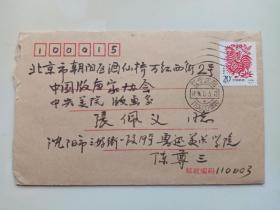 100015
北京市朝阳区酒仙桥万红西街2号
中国版画家协会
中央美院 版画家
张佩义 
沈阳市三好街一段19号鲁迅美术学院
陈尊三
邮政编码 110003
20